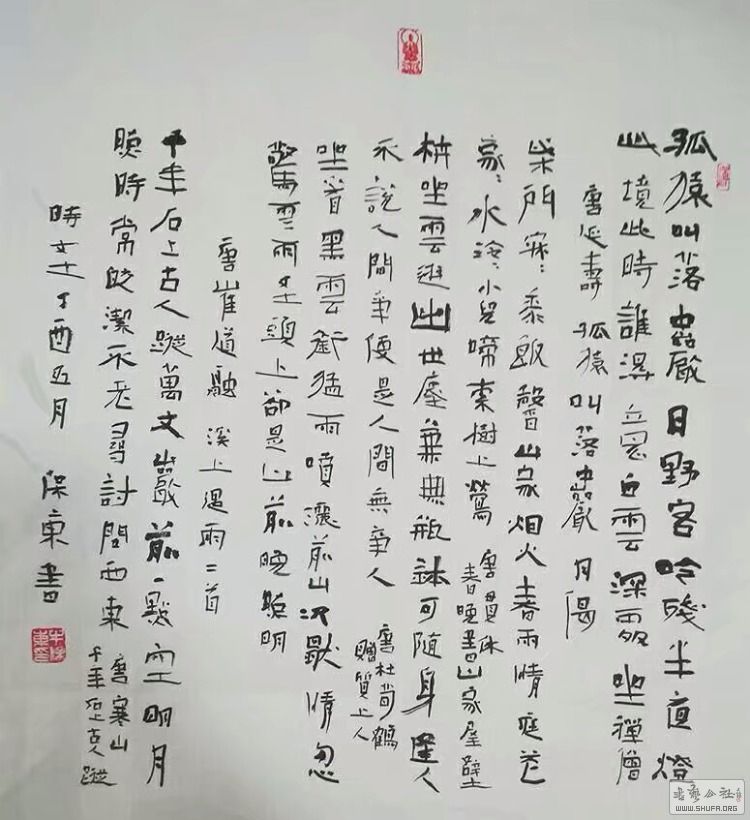 孤猿叫落中巖月野客吟殘半夜燈
此境此時誰得意白雲深處坐禪僧
唐延壽 孤猿叫落中巖月偈
柴門寂:黍飯馨山家烟火春雨晴庭花
蒙:水泠:小兒啼索樹上鶯
唐貫休
春晚書山家屋壁
枿坐雲遊出世塵兼無瓶鉢可隨身逢人
不說人間事便是人間無事人
唐杜荀鶴
贈質上人
坐看黑雲銜猛雨噴灑前山此獸晴忽
驚雲雨在頭上卻是山前晚晴明
唐崔道融 溪上遇雨二首
千年石上古人蹤萬丈巖前一點空明月
照時常皎潔不勞尋討問西東
唐寒山
千年石上古人蹤
時在丁酉五月 保東書
WWW.SHUFA.ORG